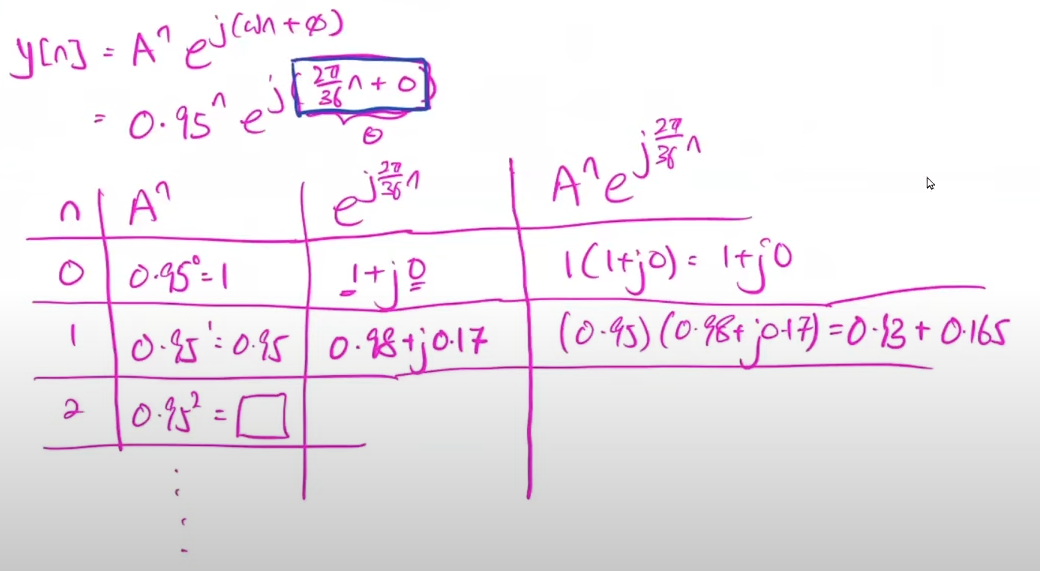 y[n] = Aⁿ e^{j(ωn + φ)}
= 0.95ⁿ e^{j(2π/36 n + 0)}
θ
n | Aⁿ | e^{j 2π/36 n} | Aⁿ e^{j 2π/36 n}
0 | 0.95⁰ = 1 | 1 + j0 | 1(1 + j0) = 1 + j0
1 | 0.95¹ = 0.95 | 0.98 + j0.17 | (0.95)(0.98 + j0.17) = 0.93 + 0.165
2 | 0.95² = □
⋮